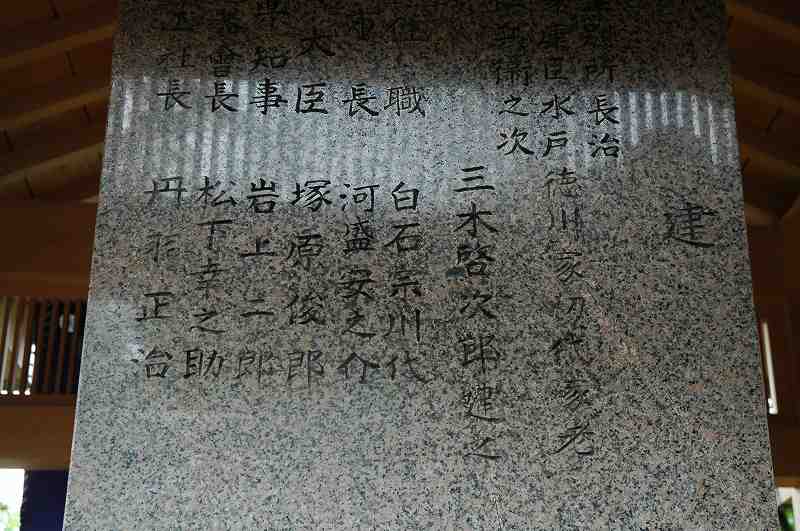 建
所長治
臣水戸徳川家初代家老
衛之次
三木啓次郎建之
住職 白石宗川代
市長 河盛安之介
大臣 塚原俊郎
県知事 岩上二郎
會長 松下幸之助
社長 丹形正治